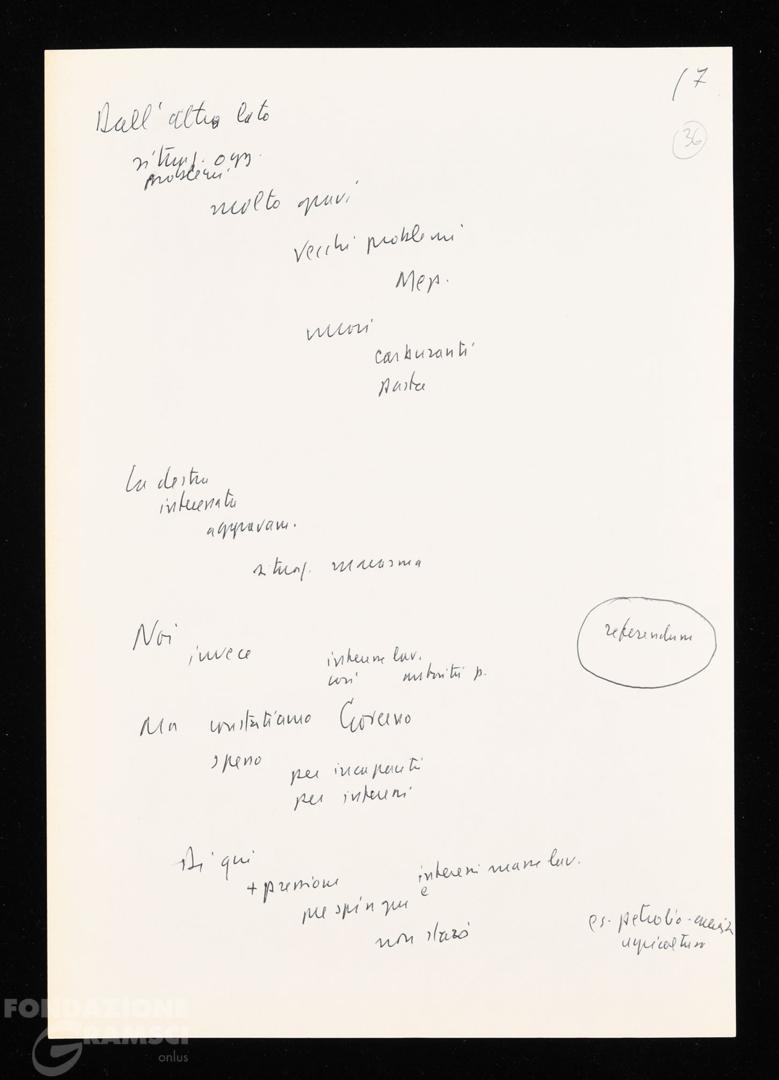 17
36
Dall'altro lato
situaz. ogg.
problemi
molto gravi
vecchi problemi
Mez.
nuovi
carburanti
pasta
La destra
interessata
aggravam.
situaz. marasma
Noi
invece
referendum
interesse lav.
così
Ma constatiamo Governo
spesso
per incapacità
per interessi
Di qui
+ pressione
interessi masse lav.
e
non starò
es. petrolio-energia
agricoltura
FONDAZIONE
GRAMSCI
onlus